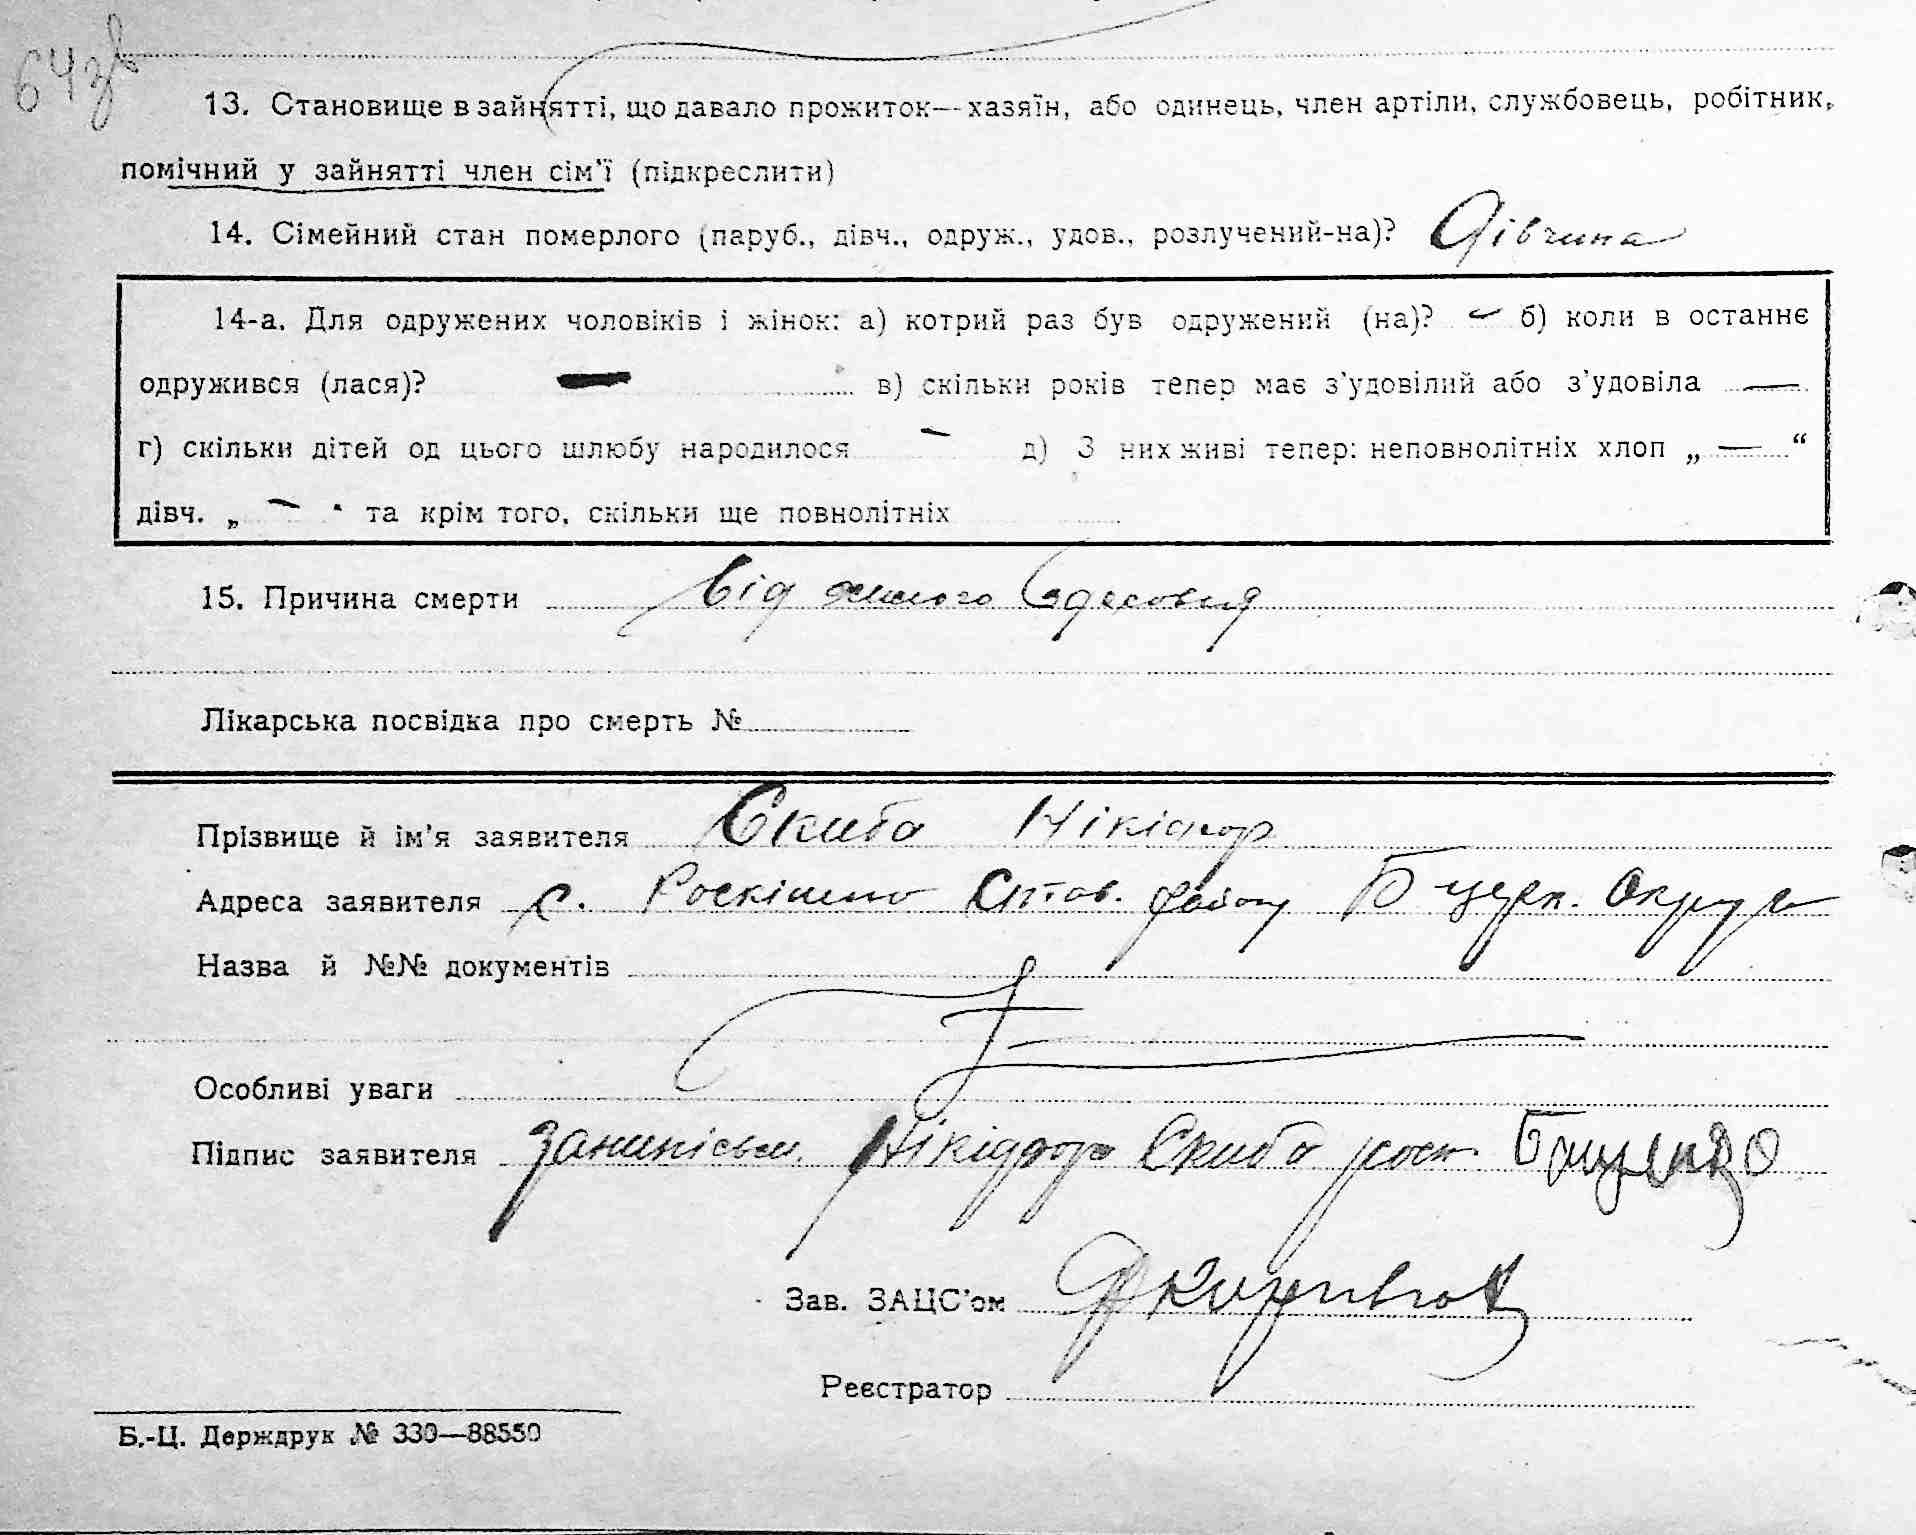 64зв
13. Становище в зайнятті, що давало прожиток—хазяїн, або одинець, член артіли, службовець, робітник,
помічний у зайнятті член сім'ї (підкреслити)
14. Сімейний стан померлого (паруб., дівч., одруж., удов., розлучений-на)? Дівчина
14-а. Для одружених чоловіків і жінок: а) котрий раз був одружений (на)? — б) коли в останнє
одружився (лася)? — в) скільки років тепер має з'удовілий або з'удовіла —
г) скільки дітей од цього шлюбу народилося — д) З них живі тепер: неповнолітніх хлоп „ — “
дівч. „ — " та крім того, скільки ще повнолітніх
15. Причина смерти Від
Лікарська посвідка про смерть №
Прізвище й ім'я заявителя Скиба Нікіфор
Адреса заявителя с. Роскішно Став. району Б церк. Округи
Назва й №№ документів
Особливі уваги
Підпис заявителя Нікіфора Скиба
Зав. ЗАЦС'ом
Реєстратор
Б.-Ц. Держдрук № 330—88550